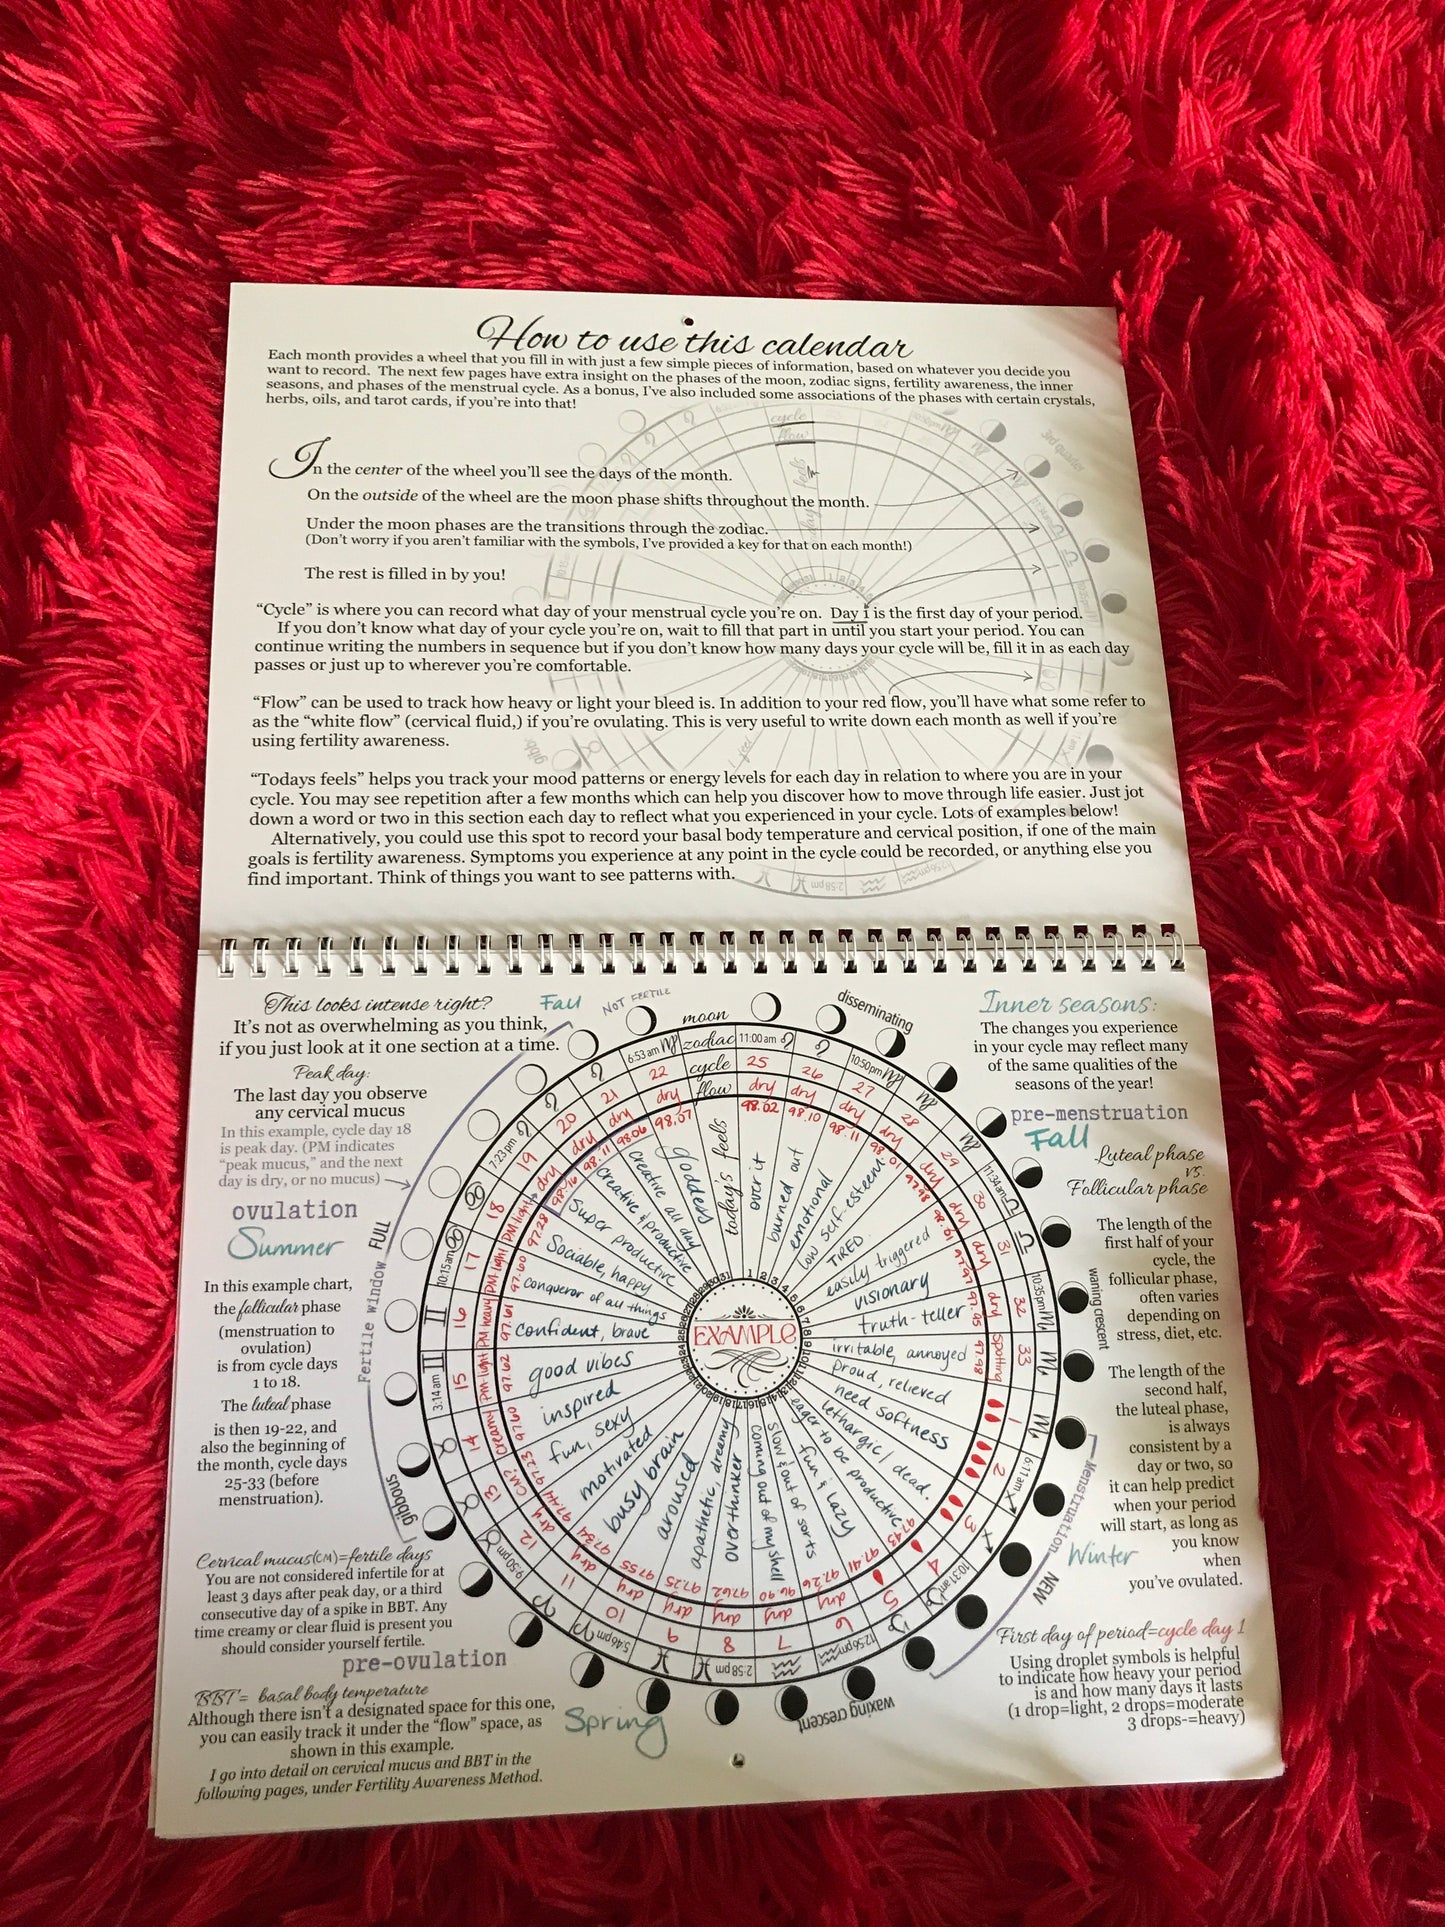 How to use this calendar
Each month provides a wheel that you fill in with just a few simple pieces of information, based on whatever you decide you
want to record. The next few pages have extra insight on the phases of the moon, zodiac signs, fertility awareness, the inner
seasons, and phases of the menstrual cycle. As a bonus, I've also included some associations of the phases with certain crystals,
herbs, oils, and tarot cards, if you're into that!
In the center of the wheel you'll see the days of the month.
On the outside of the wheel are the moon phase shifts throughout the month.
Under the moon phases are the transitions through the zodiac.
(Don't worry if you aren't familiar with the symbols, I've provided a key for that on each month!)
The rest is filled in by you!
"Cycle" is where you can record what day of your menstrual cycle you're on. Day 1 is the first day of your period.
If you don't know what day of your cycle you're on, wait to fill that part in until you start your period. You can
continue writing the numbers in sequence but if you don't know how many days your cycle will be, fill it in as each day
passes or just up to wherever you're comfortable.
"Flow" can be used to track how heavy or light your bleed is. In addition to your red flow, you'll have what some refer to
as the "white flow" (cervical fluid,) if you're ovulating. This is very useful to write down each month as well if you're
using fertility awareness.
"Todays feels" helps you track your mood patterns or energy levels for each day in relation to where you are in your
cycle. You may see repetition after a few months which can help you discover how to move through life easier. Just jot
down a word or two in this section each day to reflect what you experienced in your cycle. Lots of examples below!
Alternatively, you could use this spot to record your basal body temperature and cervical position, if one of the main
goals is fertility awareness. Symptoms you experience at any point in the cycle could be recorded, or anything else you
find important. Think of things you want to see patterns with.
cycle
flow
3rd quarter
2:58 pm
This looks intense right?
It's not as overwhelming as you think,
if you just look at it one section at a time.
Peak day:
The last day you observe
any cervical mucus
In this example, cycle day 18
is peak day. (PM indicates
"peak mucus," and the next
day is dry, or no mucus)
ovulation
Summer
In this example chart,
the follicular phase
(menstruation to
ovulation)
is from cycle days
1 to 18.
The luteal phase
is then 19-22, and
also the beginning of
the month, cycle days
25-33 (before
menstruation).
Cervical mucus(CM)=fertile days
You are not considered infertile for at
least 3 days after peak day, or a third
consecutive day of a spike in BBT. Any
time creamy or clear fluid is present you
should consider yourself fertile.
pre-ovulation
BBT= basal body temperature
Although there isn't a designated space for this one,
you can easily track it under the "flow" space, as
shown in this example.
I go into detail on cervical mucus and BBT in the
following pages, under Fertility Awareness Method.
Spring
Fall
NOT FERTILE
moon
disseminating
zodiac
cycle
flow
today's feels
11:00 am
10:50pm
11:34am
10:35pm
6:11 am
10:31 am
12:56pm
2:58 pm
5:46pm
9:50pm
3:14 am
10:15am
7:23 pm
6:53 am
25
26
27
28
29
30
31
32
33
1
2
3
4
5
6
7
8
9
10
11
12
13
14
15
16
17
18
19
20
21
22
dry
dry
dry
dry
dry
dry
dry
dry
spotting
dry
dry
dry
dry
dry
dry
dry
CM?
creamy
PM-light
PM heavy
PM-light
PM light
dry
dry
dry
dry
98.02
98.10
98.11
98.01
97.98
97.97
97.95
97.98
97.93
97.41
97.26
96.90
97.62
97.25
97.55
97.34
97.44
97.23
97.60
97.62
97.61
97.60
97.28
98.16
98.11
98.06
98.07
over it
burned out
emotional
low self-esteem
TIRED
easily triggered
visionary
truth-teller
irritable, annoyed
proud, relieved
need softness
lethargic/dead.
eager to be productive
fun & lazy
slow & out of sorts
coming out of my shell
overthinker
apathetic, dreamy
aroused
busy brain
motivated
fun, sexy
inspired
good vibes
confident, brave
conqueror of all things
Sociable, happy
Super productive
creative & productive
creative all day
goddess
EXAMPLE
Fertile window
FULL
gibbous
waxing crescent
NEW
Menstruation
Winter
waning crescent
Inner seasons:
The changes you experience
in your cycle may reflect many
of the same qualities of the
seasons of the year!
pre-menstruation
Fall
Luteal phase
vs.
Follicular phase
The length of the
first half of your
cycle, the
follicular phase,
often varies
depending on
stress, diet, etc.
The length of the
second half,
the luteal phase,
is always
consistent by a
day or two, so
it can help predict
when your period
will start, as long as
you know
when
you've ovulated.
First day of period=cycle day 1
Using droplet symbols is helpful
to indicate how heavy your period
is and how many days it lasts
(1 drop=light, 2 drops=moderate
3 drops-=heavy)